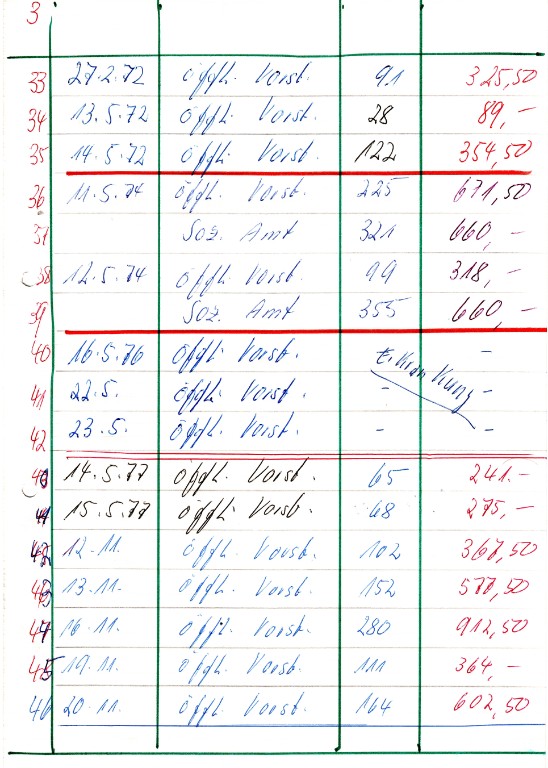 3
33 27.2.72 öffh. Vorst. 91 325,50
34 13.5.72 öffh. Vorst. 28 89,-
35 14.5.72 öffh. Vorst. 122 354,50
36 11.5.74 öffh. Vorst. 225 671,50
37 Soz. Amt 321 660,-
38 12.5.74 öffh. Vorst. 99 318,-
39 Soz. Amt 355 660,-
40 16.5.76 öffh. Vorst. -
41 22.5. öffh. Vorst. - -
42 23.5. öffh. Vorst. - -
14.5.77 öffh. Vorst. 65 241.-
15.5.77 öffh. Vorst. 68 275,-
12.11. öffh. Vorst. 102 367,50
13.11. öffh. Vorst. 152 577,50
44 16.11. öffh. Vorst. 280 912,50
45 19.11. öffh. Vorst. 111 364,-
46 20.11. öffh. Vorst. 164 602,50